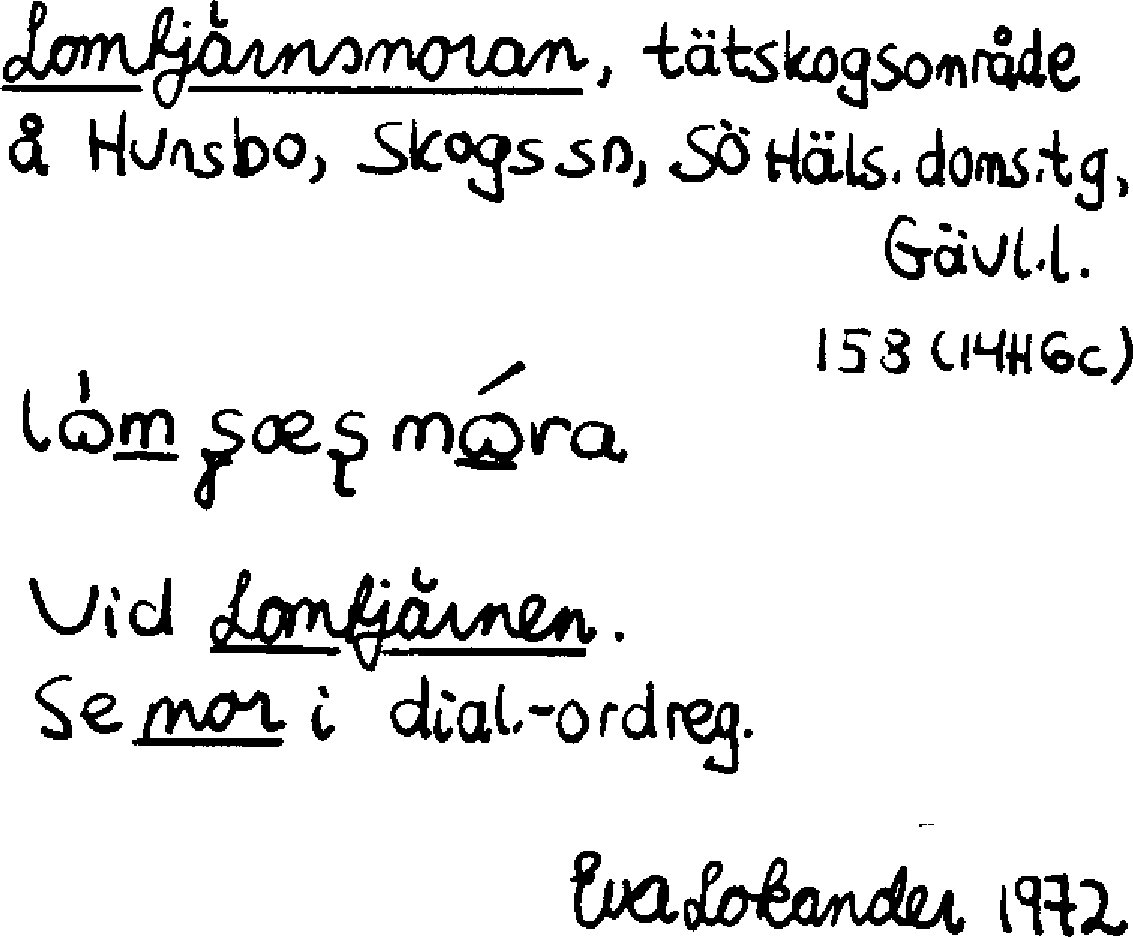 Lomtjärnsmoran, tätskogsområde
å Hunsbo, Skogs sn, Sö Häls. doms.tg,
Gävl.l.
158 (14H6c)
Vid Lomtjärnen.
Se mor i dial.-ordreg.
Eva Lokander 1972